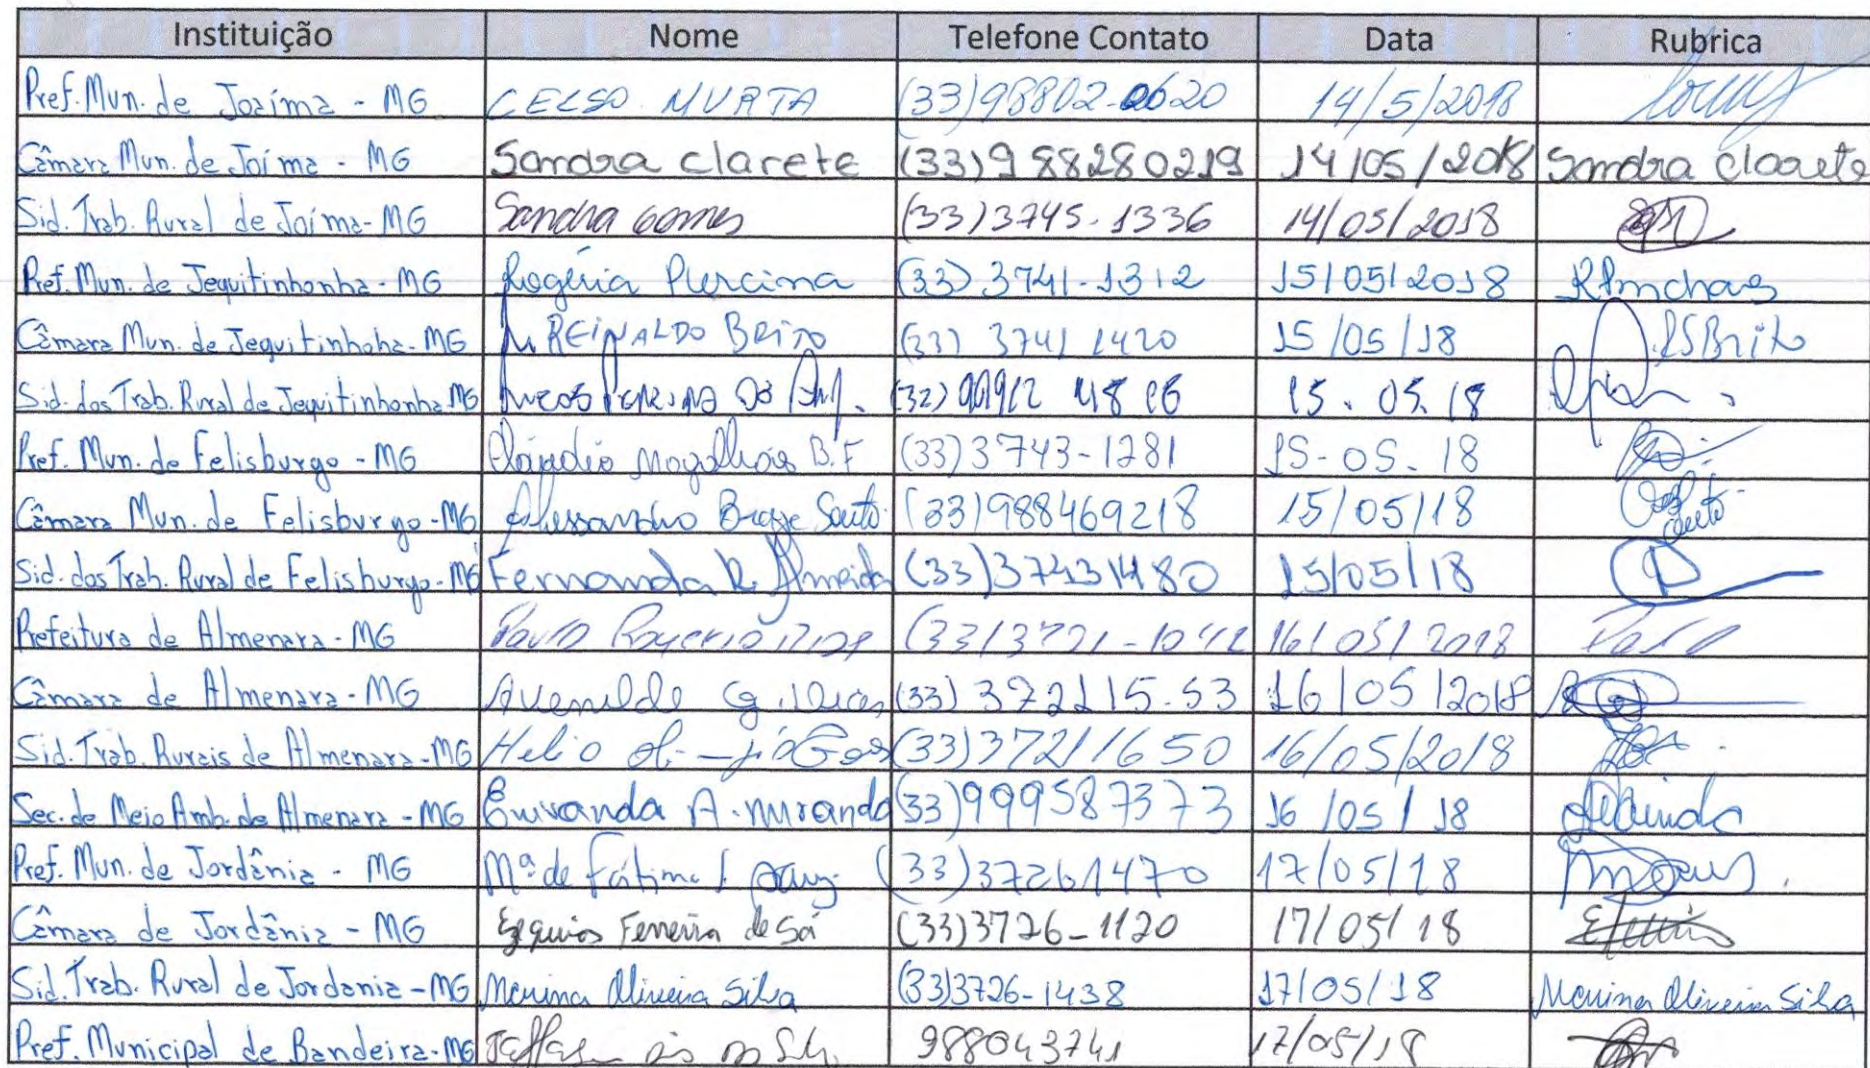 Instituição Nome Telefone Contato Data Rubrica
Pref. Mun. de Joaíma - MG CELSO MURTA (33)98802-0620 14/5/2018
Câmara Mun. de Joíma - MG Sandra clarete (33)988280219 14/05/2018 Sandra Claarete
Sid. Trab. Rural de Joíma - MG Sandra Gomes (33)3745-1336 14/05/2018
Pref. Mun. de Jequitinhonha - MG Rogéria Piercina (33) 3741-1312 15/05/2018
Câmara Mun. de Jequitinhoha - MG REINALDO BRITO (33) 3741 1420 15/05/18 RSBrito
Sid. dos Trab. Rural de Jequitinhonha MG 15.05.18
Pref. Mun. de Felisburgo - MG Magalhães B.F (33)3743-1281 15-05-18
Câmara Mun. de Felisburgo - MG Alessandro Souto (33)988469218 15/05/18
Sid. dos Trab. Rural de Felisburgo - MG Fernanda R Almeida (33)37431480 15/05/18
Prefeitura de Almenara - MG Paulo Rogerio (33)3721-1042 16/05/2018
Câmara de Almenara - MG Avenilde (33) 372115-53 16/05/2018
Sid. Trab. Rurais de Almenara - MG Helio (33)37211650 16/05/2018
Sec. de Meio Amb. de Almenara - MG A. Miranda (33)999587373 16/05/18
Pref. Mun. de Jordânia - MG Mª de Fátima (33)37261470 17/05/18
Câmara de Jordânia - MG Ferreira de Sá (33)3726-1120 17/05/18
Sid. Trab. Rural de Jordania - MG Marina Oliveira Silva (33)3726-1438 17/05/18 Marina Oliveira Silva
Pref. Municipal de Bandeira - MG 988043741 17/05/18